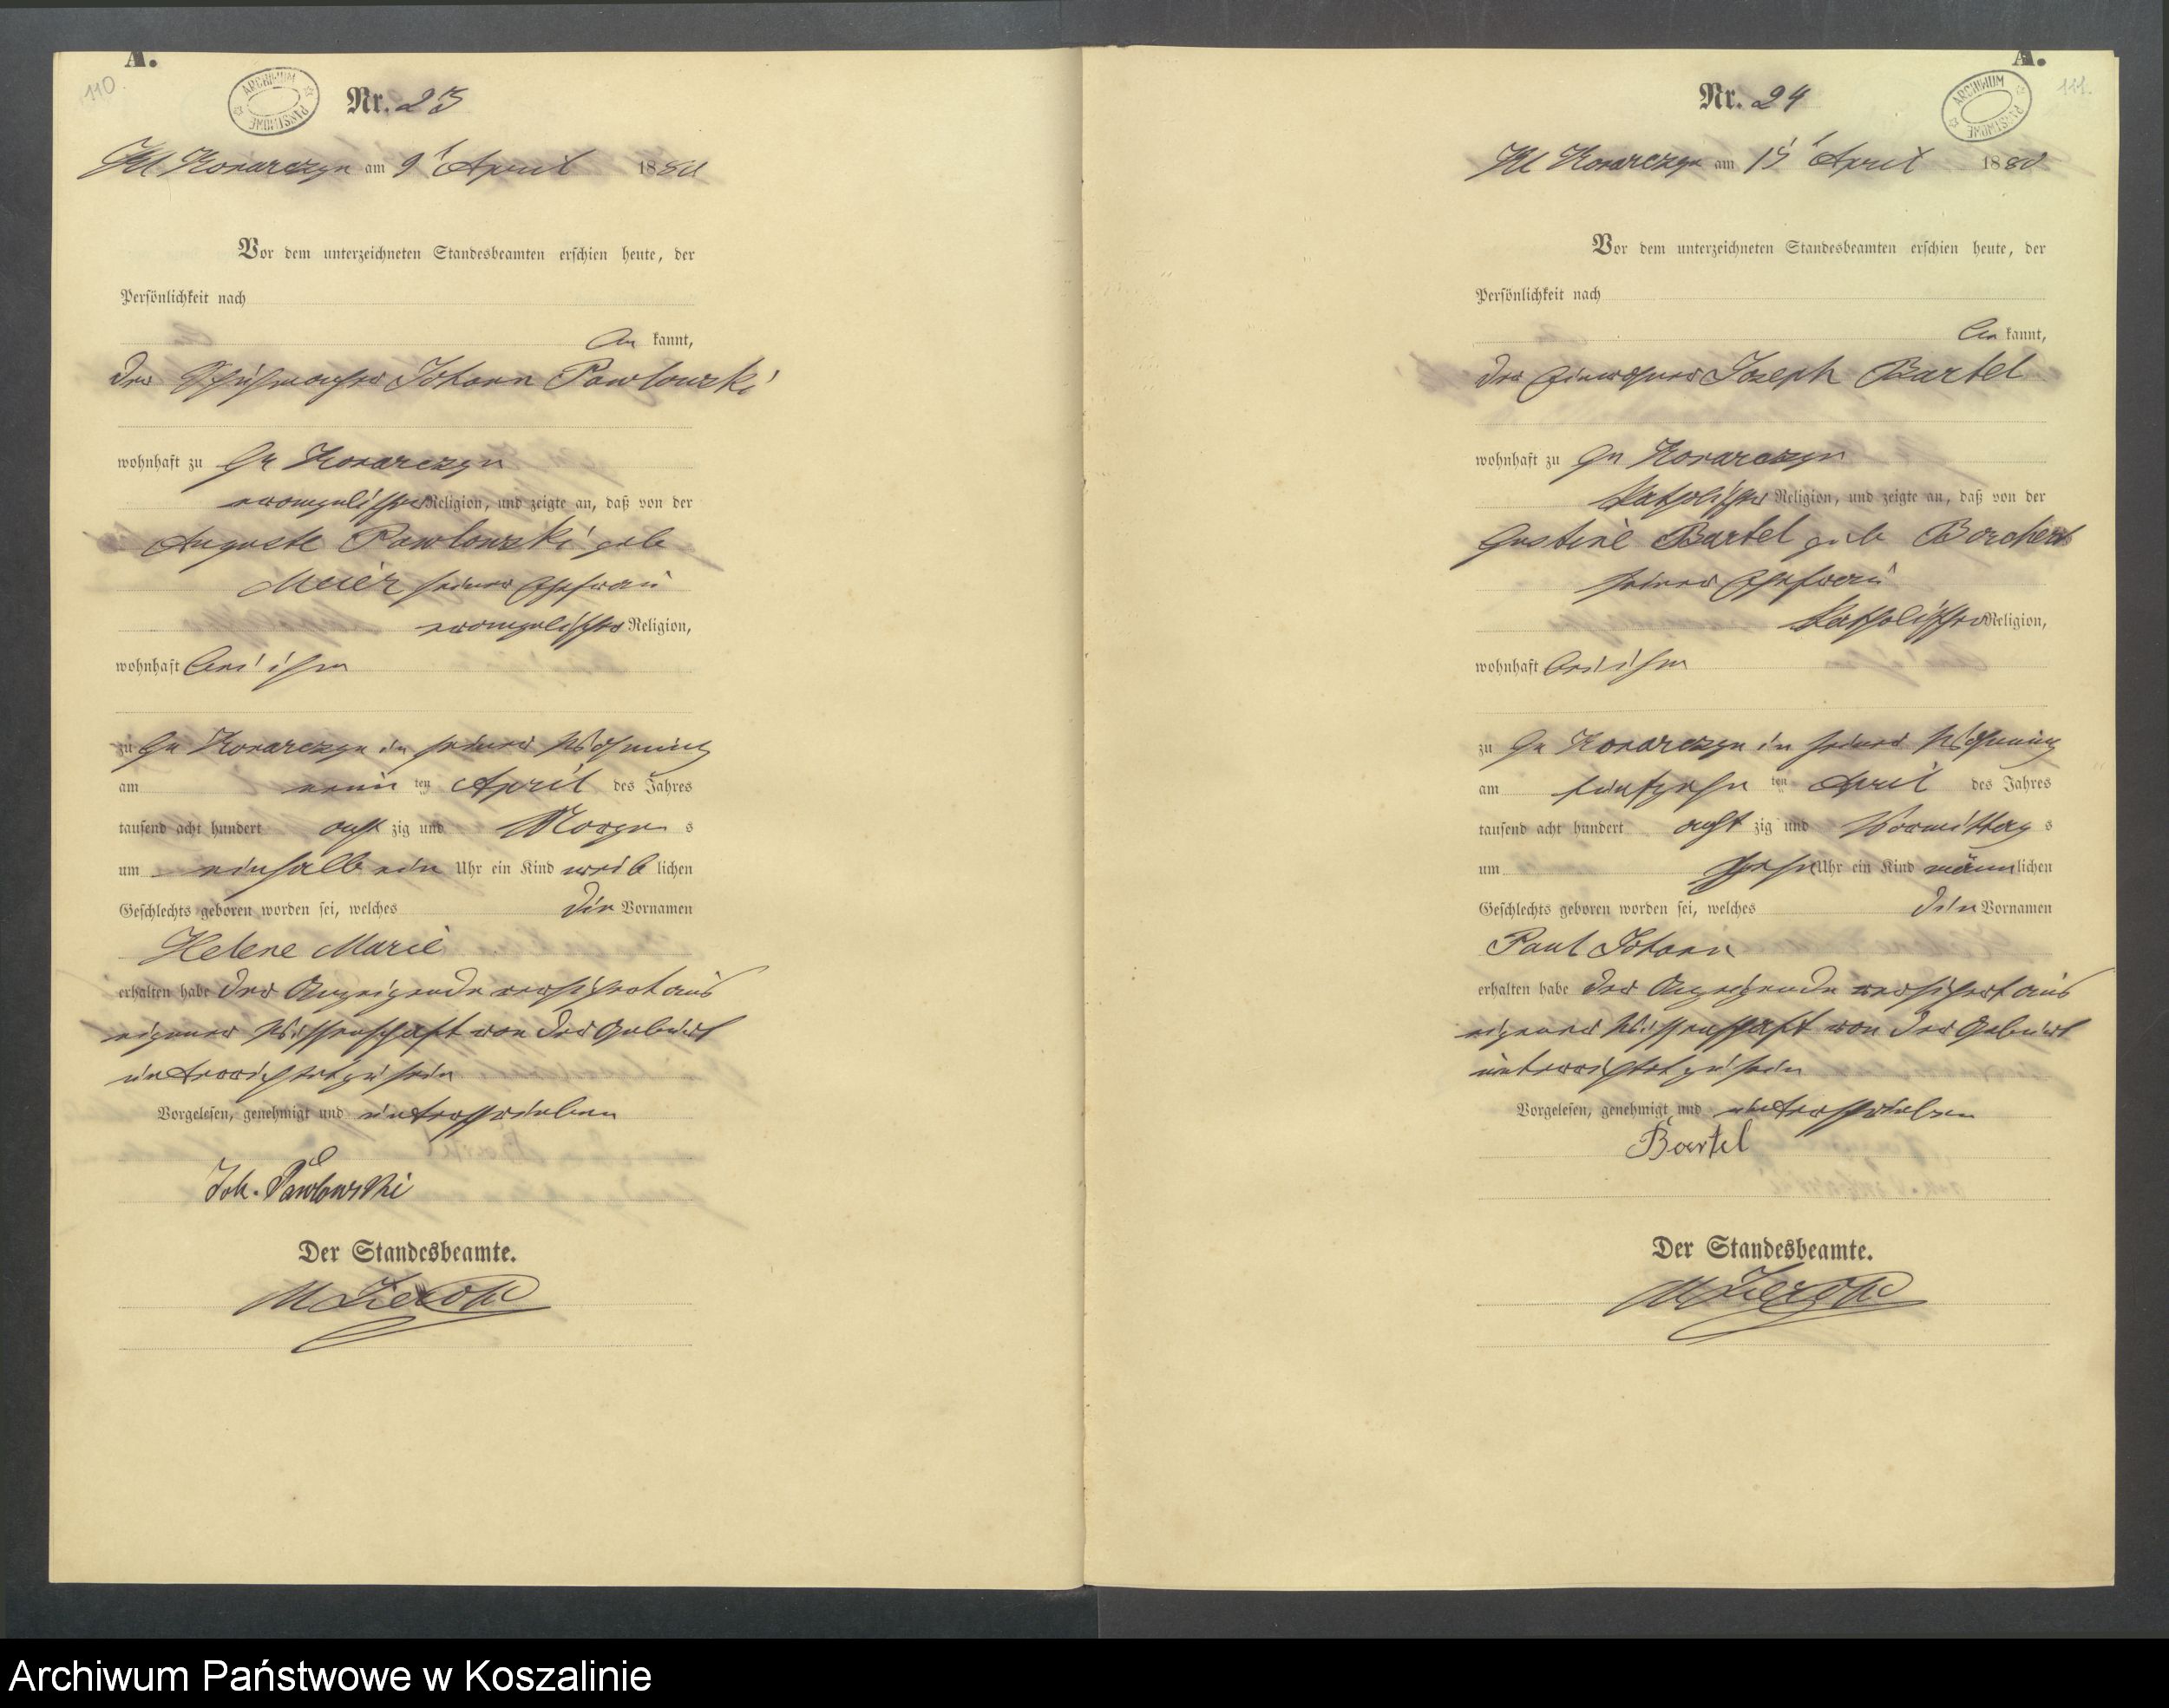 A.
110.
ARCHIWUM PAŃSTWOWE
Nr. 23
Kl Konarczyn am 9t April 1880
Vor dem unterzeichneten Standesbeamten erschien heute, der
Persönlichkeit nach
be kannt,
der Schuhmacher Johann Pawlowski
wohnhaft zu Gr Konarczyn
evangelischer Religion, und zeigte an, daß von der
Auguste Pawlowski geb
Meier seiner Ehefrau
evangelischer Religion,
wohnhaft bei ihm
zu Gr Konarczyn in seiner Wohnung
am neun ten April des Jahres
tausend acht hundert acht zig und Morgen s
um einhalb ein Uhr ein Kind weib lichen
Geschlechts geboren worden sei, welches die Vornamen
Helene Marie
erhalten habe der Anzeigende versichert aus
eigener Wissenschaft von der Geburt
unterrichtet zu sein
Vorgelesen, genehmigt und unterschrieben
Joh. Pawlowski
Der Standesbeamte.
A.
111.
ARCHIWUM PAŃSTWOWE
Nr. 24
Kl Konarczyn am 15t April 1880
Vor dem unterzeichneten Standesbeamten erschien heute, der
Persönlichkeit nach
be kannt,
der Einwohner Joseph Bartel
wohnhaft zu Gr Konarczyn
katholischer Religion, und zeigte an, daß von der
Justine Bartel geb Borchert
seiner Ehefrau
katholischer Religion,
wohnhaft bei ihm
zu Gr Konarczyn in seiner Wohnung
am fünfzehn ten April des Jahres
tausend acht hundert acht zig und Vormittag s
um zehn Uhr ein Kind männ lichen
Geschlechts geboren worden sei, welches die Vornamen
Paul Johann
erhalten habe der Anzeigende versichert aus
eigener Wissenschaft von der Geburt
unterrichtet zu sein
Vorgelesen, genehmigt und unterschrieben
Bartel
Der Standesbeamte.
Archiwum Państwowe w Koszalinie